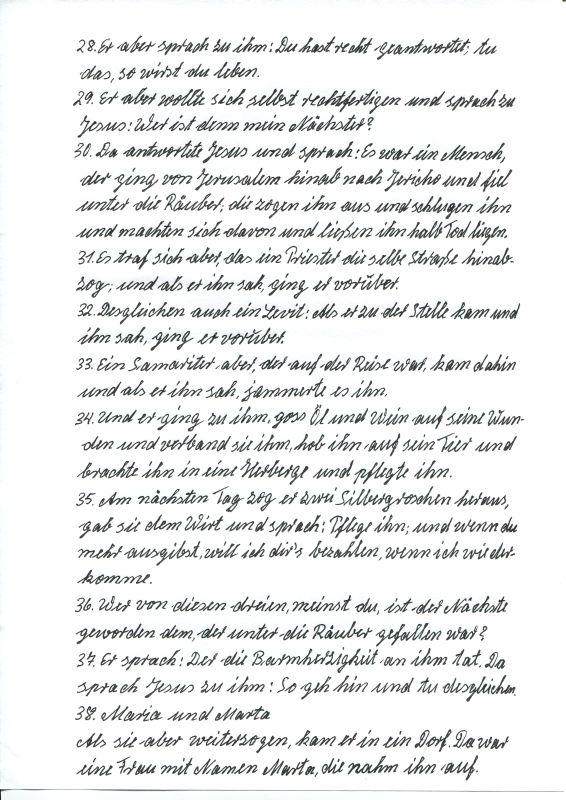 28. Er aber sprach zu ihm: Du hast recht geantwortet; tu
das, so wirst du leben.
29. Er aber wollte sich selbst rechtfertigen und sprach zu
Jesus: Wer ist denn mein Nächster?
30. Da antwortete Jesus und sprach: Es war ein Mensch,
der ging von Jerusalem hinab nach Jericho und fiel
unter die Räuber; die zogen ihn aus und schlugen ihn
und machten sich davon und ließen ihn halb Tod liegen.
31. Es traf sich aber, das ein Priester die selbe Straße hinab-
zog; und als er ihn sah, ging er vorüber.
32. Desgleichen auch ein Levit: Als er zu der Stelle kam und
ihn sah, ging er vorüber.
33. Ein Samariter aber, der auf der Reise war, kam dahin
und als er ihn sah, jammerte es ihn.
34. Und er ging zu ihm, goss Öl und Wein auf seine Wun-
den und verband sie ihm, hob ihn auf sein Tier und
brachte ihn in eine Herberge und pflegte ihn.
35. Am nächsten Tag zog er zwei Silbergroschen heraus,
gab sie dem Wirt und sprach: Pflege ihn; und wenn du
mehr ausgibst, will ich dir's bezahlen, wenn ich wieder-
komme.
36. Wer von diesen dreien, meinst du, ist der Nächste
geworden dem, der unter die Räuber gefallen war?
37. Er sprach: Der die Barmherzigkeit an ihm tat. Da
sprach Jesus zu ihm: So geh hin und tu desgleichen.
38. Maria und Marta
Als sie aber weiterzogen, kam er in ein Dorf. Da war
eine Frau mit Namen Marta, die nahm ihn auf.